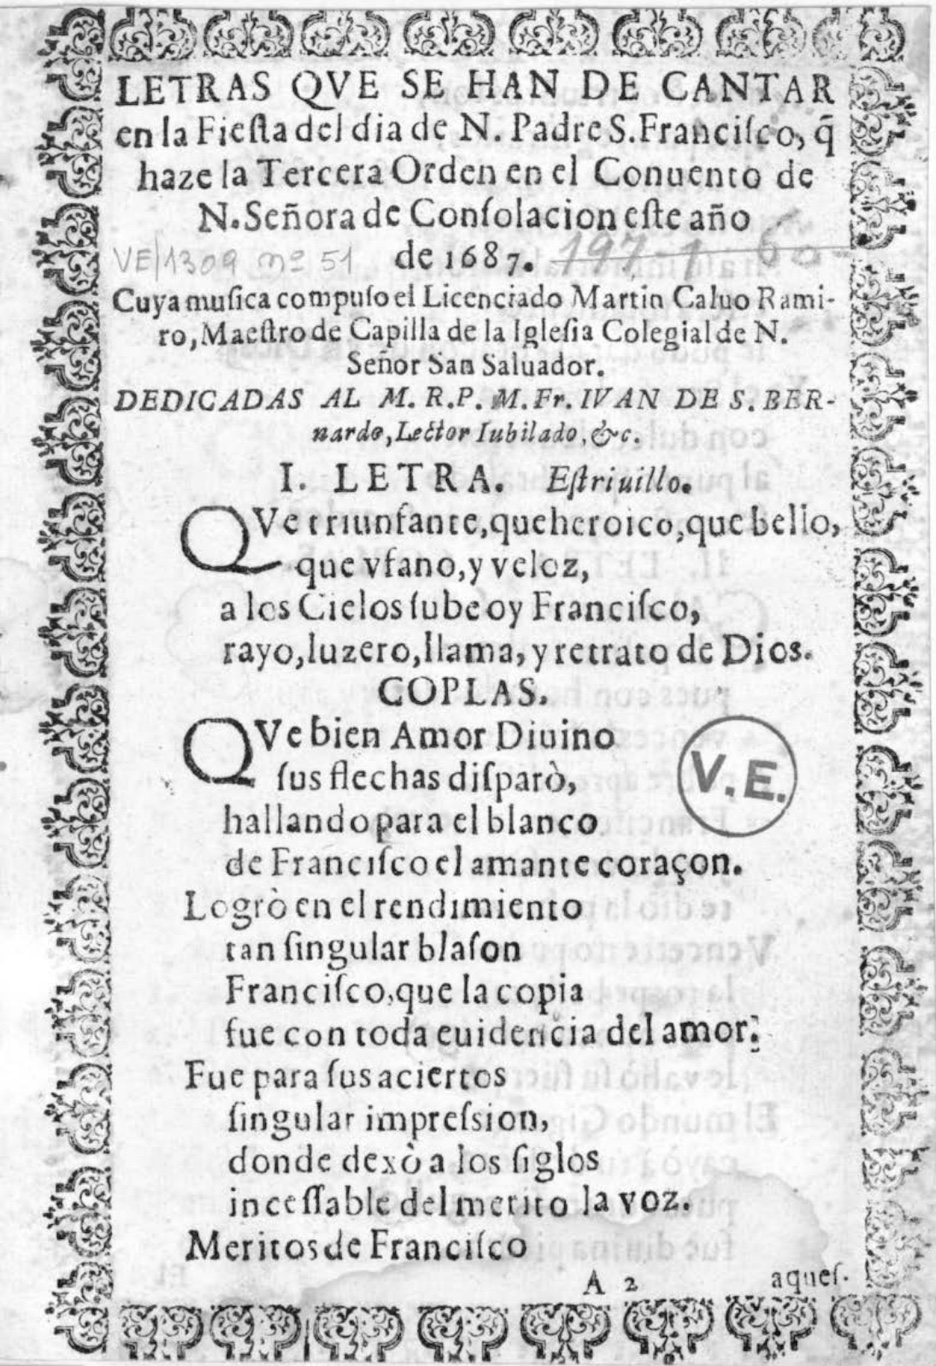 LETRAS QVE SE HAN DE CANTAR
en la Fiesta del dia de N. Padre S. Franciſco, q̃
haze la Tercera Orden en el Conuento de
N. Señora de Conſolacion eſte año
de 1687.
VE/1309 nº 51
197 1 60
Cuya muſica compuſo el Licenciado Martin Caluo Rami-
ro, Maeſtro de Capilla de la Igleſia Colegial de N.
Señor San Saluador.
DEDICADAS AL M. R. P. M. Fr. IVAN DE S. BER-
nardo, Lector Iubilado, &c.
I. LETRA. Eſtriuillo.
QVe triunfante, que heroico, que bello,
que vfano, y veloz,
a los Cielos ſube oy Franciſco,
rayo, luzero, llama, y retrato de Dios.
COPLAS.
QVe bien Amor Diuino
ſus flechas diſparò,
hallando para el blanco
de Franciſco el amante coraçon.
V.E.
Logrò en el rendimiento
tan ſingular blaſon
Franciſco, que la copia
fue con toda euidencia del amor.
Fue para ſus aciertos
ſingular impreſsion,
donde dexò a los ſiglos
inceſſable del merito la voz.
Meritos de Franciſco
A 2 aqueſ-